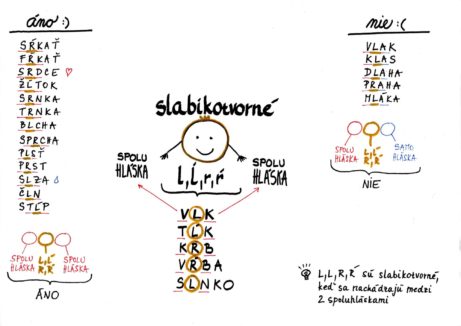 áno :)
SŔKAŤ
FŔKAŤ
SRDCE
ŽĹTOK
SRNKA
TŔNKA
BLCHA
SPRCHA
PLSŤ
PRST
SLZA
ČLN
STĹP
SPOLU
HLÁSKA
L,Ĺ
R,Ŕ
SPOLU
HLÁSKA
ÁNO
slabikotvorné
SPOLU
HLÁSKA
L,Ĺ,r,ŕ
SPOLU
HLÁSKA
VLK
TĹK
KRB
VŔBA
SLNKO
nie :(
VLAK
KLAS
DLAHA
PRAHA
MLÁKA
SPOLU
HLÁSKA
L,Ĺ
R,Ŕ
SAMO
HLÁSKA
NIE
L,Ĺ,R,Ŕ sú slabikotvorné,
keď sa nachádzajú medzi
2 spoluhláskami